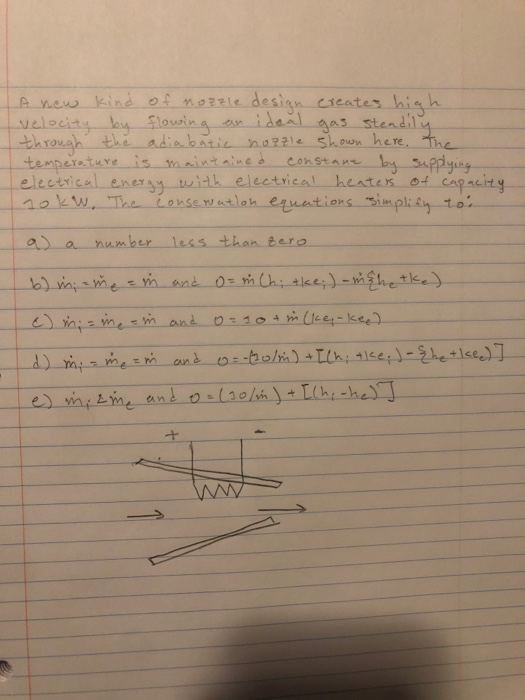 A new kind of nozzle design creates high
velocity by flowing an ideal gas steadily
through the adiabatic nozzle shown here. The
temperature is maintained constant by supplying
electrical energy with electrical heaters of capacity
10 kW. The conservation equations simplify to:
a) a number less than zero
b) ṁi = ṁe = ṁ and 0 = ṁ(hi + kei) - ṁ{he + ke)
c) ṁi = ṁe = ṁ and 0 = 10 + ṁ(kei - kee)
d) ṁi = ṁe = ṁ and 0 = -(10/ṁ) + [(hi + kei) - {he + kee)]
e) ṁi ≤ ṁe and 0 = (10/ṁ) + [(hi - he)]
+ -